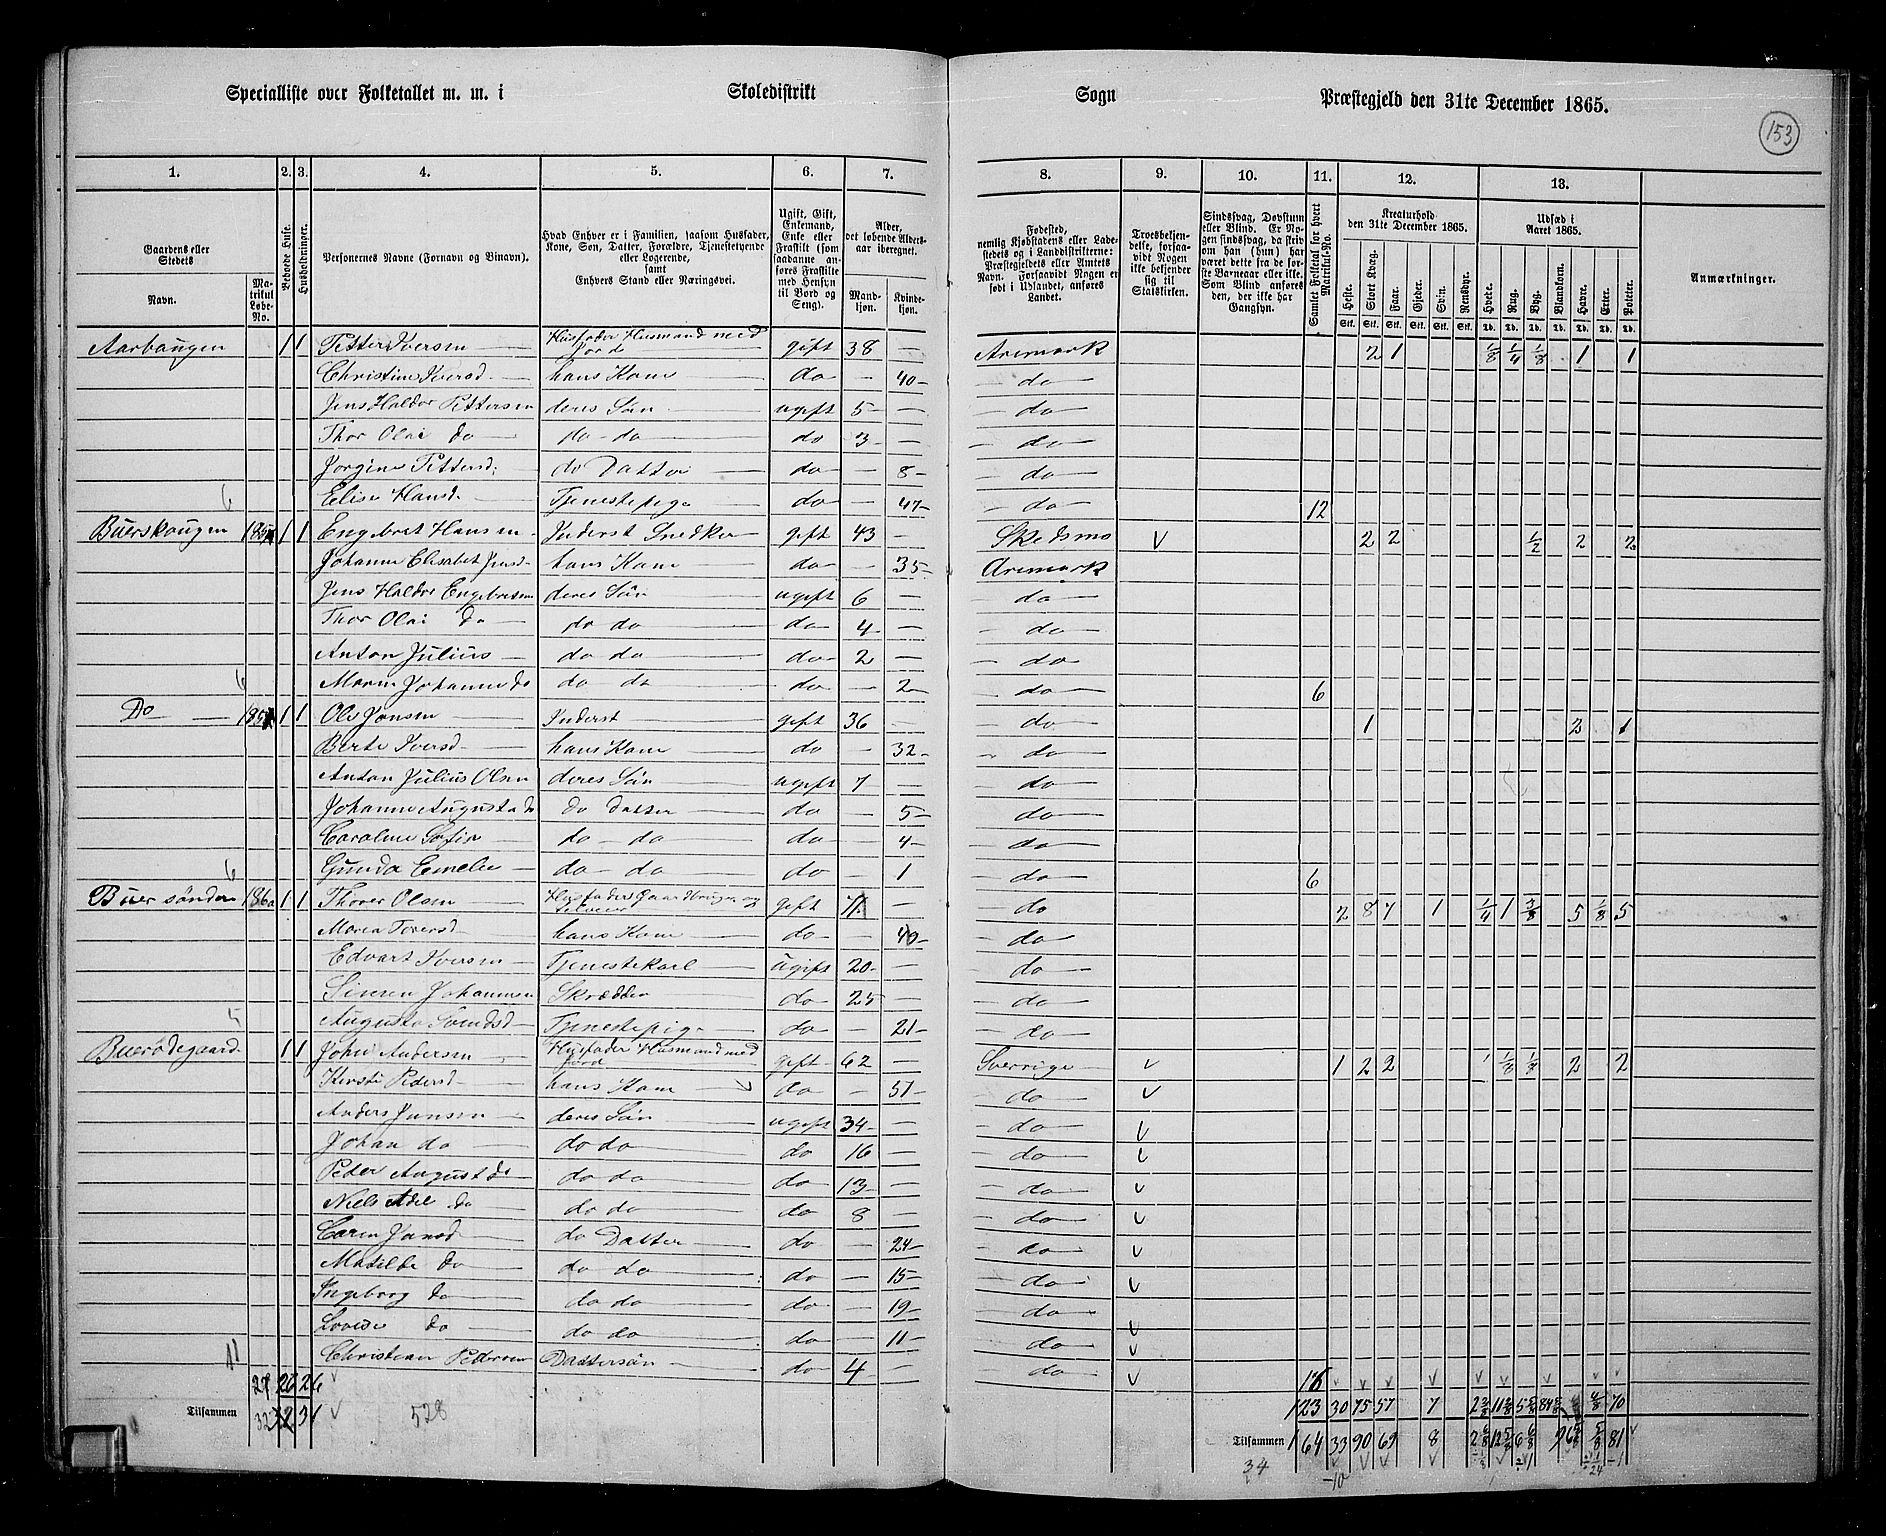 Specialliste over Folketallet m. m. i Skoledistrikt Sogn Præstegjeld den 31te December 1865.
153
1. 2. 3. 4. 5. 6. 7. 8. 9. 10. 11. 12. 13.
Gaardens eller Stedets
Navn.
Matrikul Løbe-No.
Beboede Huse.
Husholdninger.
Personernes Navne (Fornavn og Binavn).
Hvad Enhver er i Familien, saasom Husfader, Kone, Søn, Datter, Forældre, Tjenestetyende eller Logerende, samt Enhvers Stand eller Næringsvei.
Ugift, Gift, Enkemand, Enke eller Fraskilt (som saadanne anføres Fraskilte med Hensyn til Bord og Seng).
Alder, det løbende Alders-aar iberegnet.
Mandkjøn.
Kvindekjøn.
Fødested, nemlig Kjøbstadens eller Ladestedets og i Landdistrikterne: Præstegjeldets eller Amtets Navn. Forsaavidt Nogen er født i Udlandet, anføres Landet.
Troesbekjendelse, forsaavidt Nogen ikke bekjender sig til Statskirken.
Sindssvag, Døvstum eller Blind. Er Nogen sindssvag, da skriv om han (hun) har været dette fra de første Barneaar eller ikke. Som Blind anføres den, der ikke har Gangsyn.
Samlet Folketal for hvert Matrikul-No.
Kreaturhold den 31te December 1865.
Heste. Stort Kvæg. Faar. Gjeder. Svin. Rensdyr.
Udsæd i Aaret 1865.
Hvede. Rug. Byg. Blandkorn. Havre. Erter. Poteter.
Anmærkninger.
Aarbaugen 1 1 Petter Iversen Husfader Husmand med Jord gift 38 — Aremark 2 1 1/8 1/4 1/8 1 1
Christine Iversd. hans Kone do — 40 do
Jens Haldor Pettersen deres Søn ugift 5 — do
Thor Olai do do do do 3 — do
Jorgine Pettersd. do Datter do — 8 do
6 Elise Hansd. Tjenestepige do — 47 do 12
Buerskougen 1 1 Engebret Hansen Inderst Snedker gift 43 — Skedsmo V 2 2 1/2 2 2
Johanne Elisabet Jensd. hans Kone do — 35 Aremark
Jens Haldor Engebretsen deres Søn ugift 6 — do
Thor Olai do do do do 4 — do
Anton Julius do do do 2 — do
6 Maren Johanne do do do do — 2 do 6
Do 1 1 Ole Jansen Inderst gift 36 — do 1 2 1
Berte Iversd. hans Kone do — 32 do
Anton Julius Olsen deres Søn ugift 7 — do
Johanne Augusta do do Datter do — 5 do
Caroline Sofie do do do — 4 do
6 Gunda Emelie do do do — 1 do 6
Buer søndre 186a 1 1 Thorer Olsen Husfader Gaardbruger og Selveier gift 71 do 2 8 7 1 1/4 1 3/8 5 1/8 5
Maren Torersd. hans Kone do — 40 do
Edvart Iversen Tjenestekarl ugift 20 — do
Simen Johannesen Skrædder do 25 — do
5 Augusta Svendsd. Tjenestepige do — 21 do
Buerødegaard 1 1 John Andersen Husfader Husmand med Jord gift 62 — Sverrige V 1 2 2 1/8 1/8 2 2
Kersti Pedersd. hans Kone V do — 51 do V
Anders Jansen deres Søn ugift 34 — do V
Johan do do do do 16 — do V
Peter August do do do do 13 — do V
Niels Adel do do do do 8 — do V
Caren Jansd do Datter do — 24 do V
Matilde do do do do — 15 do V
Ingeborg do do do do — 19 do V
Lovise do do do do — 11 do V
11 Christian Pedersen Dattersøn do 4 — do V
27 26 26 16
123 30 75 57 7 70
Tilsammen 32 32 31 528 Tilsammen 164 33 90 69 8 81
34 -10